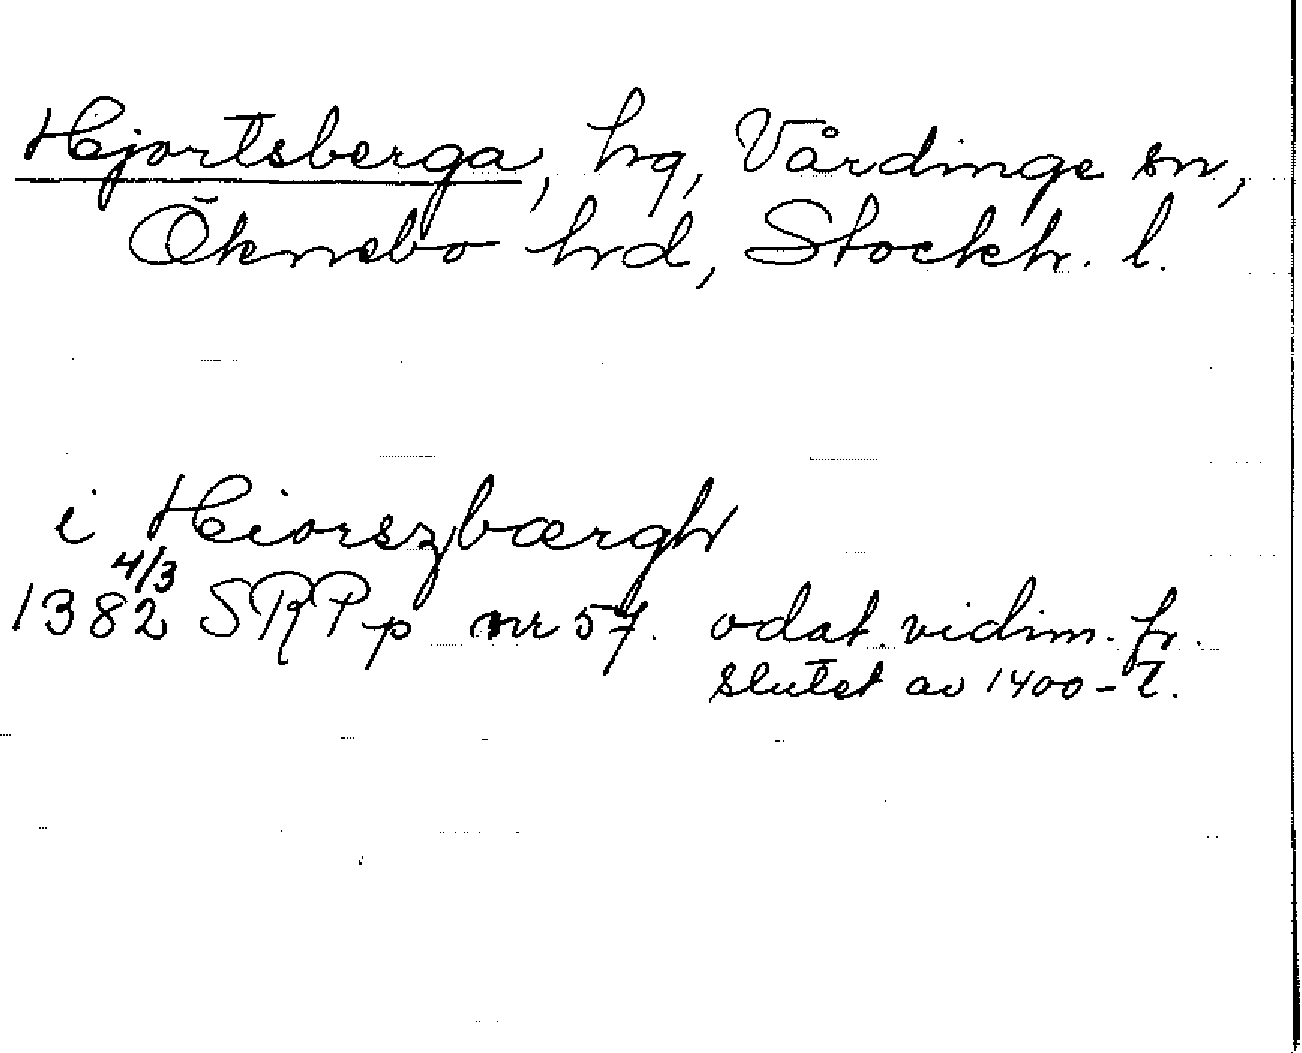 Hjortsberga, hg, Vårdinge sn,
Öknebo hrd, Stockh. l.
i Hiorszbærgh
4/3
1382 SRPp nr 57. odat. vidim. fr.
slutet av 1400-t.